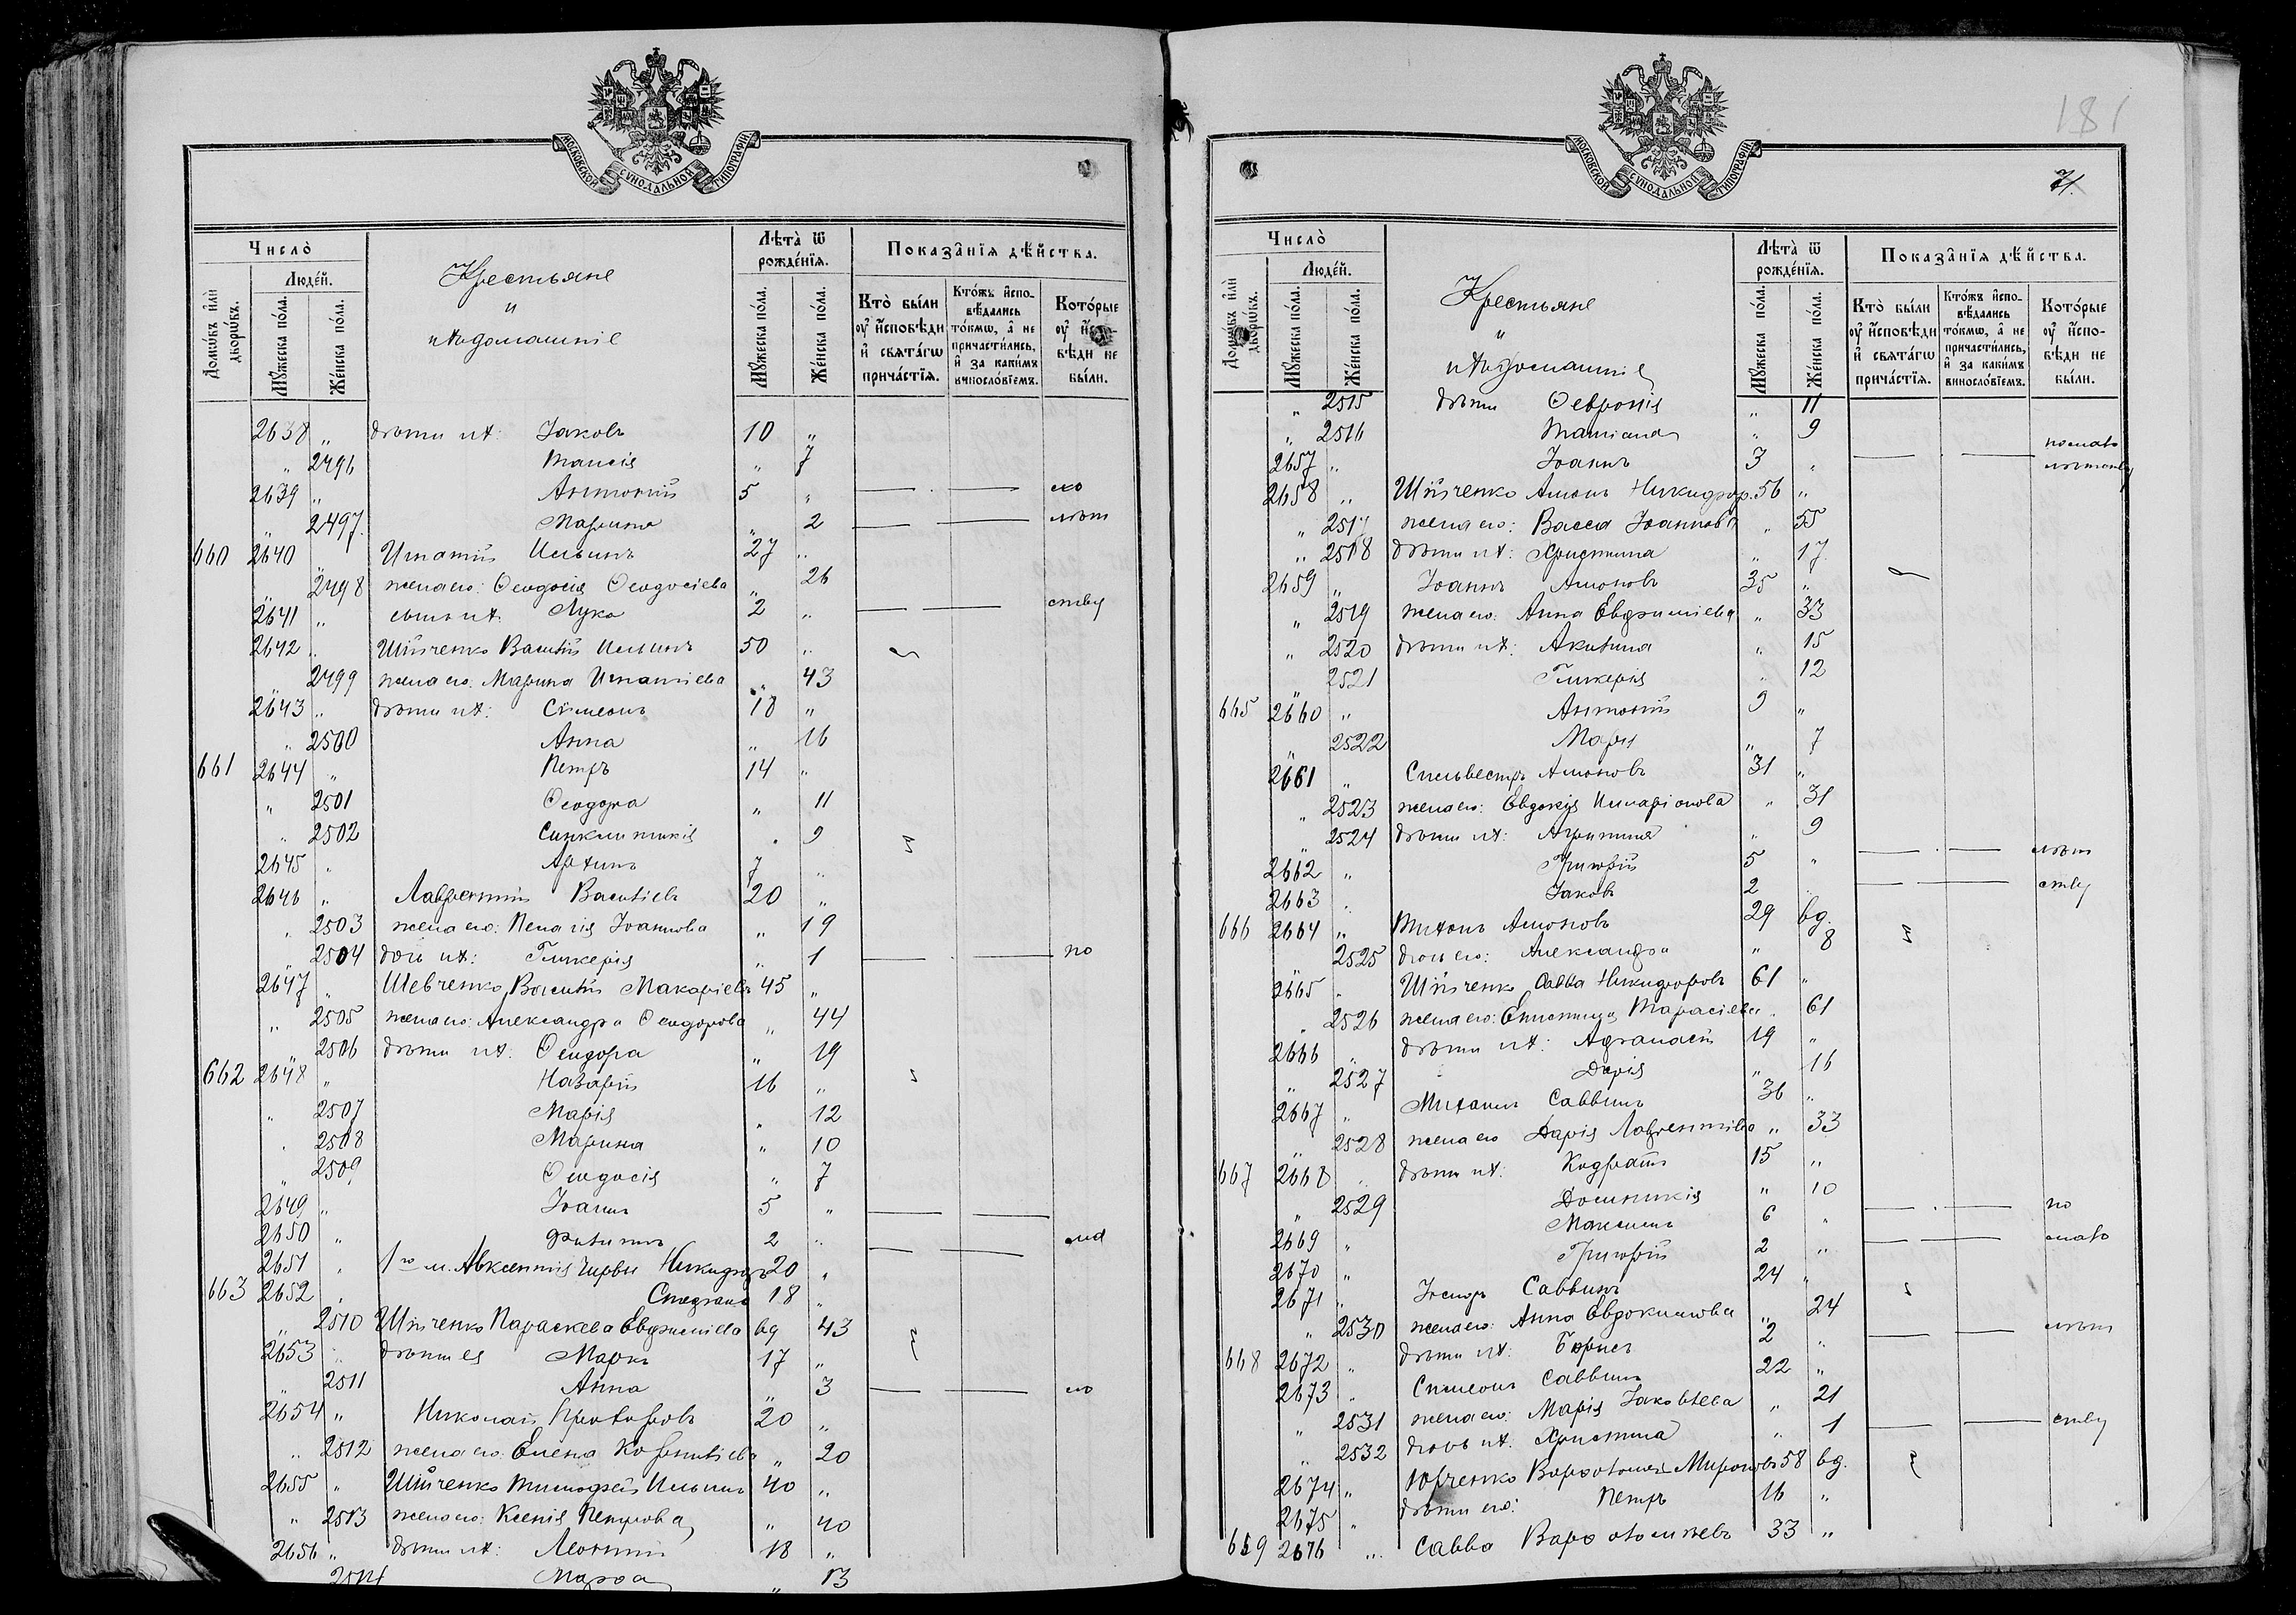 МОСКОВСКОЙ СѴНОДАЛЬНОЙ ТИПОГРАФІИ
Число̀
Людéй.
Домѡ́въ и҆лѝ дворѡ́въ.
Мꙋ́жеска по́ла.
Же́нска по́ла.
Крестьяне
и
ихъ домашніе
Лѣта̀ ѿ рожде́нїѧ.
Мꙋ́жеска по́ла.
Же́нска по́ла.
Показа̑нїѧ дѣ́йства.
Кто̀ бы́ли ᲂу҆ и҆сповѣди и҆ свѧта́гѡ прича́стїѧ.
Кто́жъ и҆спо-вѣдались то́кмѡ, а҆ не причасти́лись, и҆ за каки́мъ винослóвїемъ.
Кото́рые ᲂу҆ и҆спо-вѣди не бы́ли.
2638 „ дѣти ихъ: Іаковъ 10 „
„ 2496 Таисія „ 7
2639 „ Антоній 5 „ — — мо
„ 2497 Марина „ 2 — — лѣт
660 2640 Игнатій Ильинъ 27 „
„ 2498 жена его: Ѳеодосія Ѳеодосіева „ 26
2641 „ сынъ ихъ: Лука 2 „ — — ству
2642 „ Василій Ильинъ 50 „
„ 2499 жена его: Марина Игнатіева „ 43
2643 „ дѣти ихъ: Сѵмеонъ 18 „
„ 2500 Анна „ 16
661 2644 „ Петръ 14 „
„ 2501 Ѳеодора „ 11
„ 2502 Синклитикія „ 9
2645 „ 7 „
2646 „ Лаврентій Василіевъ 20 „
„ 2503 жена его: Пелагія Іоаннова „ 19
„ 2504 дочь ихъ: Гликерія „ 1 — — по
2647 „ Шевченко Василій Макаріевъ 45 „
„ 2505 жена его: Александра Ѳеодорова „ 44
2506 дѣти ихъ: Ѳеодора „ 19
662 2648 „ Назарій 16 „
„ 2507 Марія „ 12
„ 2508 Марина „ 10
„ 2509 Ѳеодосія „ 7
2649 „ Іоаннъ 5 „ — —
2650 „ Филиппъ 2 „ — — мал
2651 „ 1го м. Авксентія Никифоръ 20 „
663 2652 „ Стефанъ 18 „
„ 2510 Параскева Евфиміева вд 43
2653 „ дѣти ея Маркъ 17 „
„ 2511 Анна „ 3 — — мо
2654 „ Николай 20 „
„ 2512 жена его: Елена Корниліева „ 20
2655 „ Тимофей Ильинъ 40 „
„ 2513 жена его: Ксенія Петрова „ 40
2656 „ дѣти ихъ: Леонтій 18 „
2514 Марѳа „ 13
181
МОСКОВСКОЙ СѴНОДАЛЬНОЙ ТИПОГРАФІИ
71.
Число̀
Людéй.
Домѡ́въ и҆лѝ дворѡ́въ.
Мꙋ́жеска по́ла.
Же́нска по́ла.
Крестьяне
и
ихъ домашніе
Лѣта̀ ѿ рожде́нїѧ.
Мꙋ́жеска по́ла.
Же́нска по́ла.
Показа̑нїѧ дѣ́йства.
Кто̀ бы́ли ᲂу҆ и҆сповѣди и҆ свѧта́гѡ прича́стїѧ.
Кто́жъ и҆спо-вѣдались то́кмѡ, а҆ не причасти́лись, и҆ за каки́мъ винослóвїемъ.
Кото́рые ᲂу҆ и҆спо-вѣди не бы́ли.
„ 2515 дѣти Ѳевронія „ 11
„ 2516 Татіана „ 9
2657 „ Іоаннъ 3 „ — — по мало лѣтству
2658 „ Амонъ Никифор. 56 „
„ 2517 жена его: Васса Іоаннова „ 55
„ 2518 дѣти ихъ: Христина „ 17
2659 „ Іоаннъ Амоновъ 35 „
„ 2519 жена его: Анна Евфиміева „ 33
„ 2520 дѣти ихъ: Акилина „ 15
2521 Гликерія „ 12
665 2660 „ Антоній 9 „
„ 2522 Марія „ 7
2661 „ Сильвестръ Амоновъ 31 „
„ 2523 жена его: Евдокія Иларіонова „ 31
„ 2524 дѣти ихъ: „ 9
2662 „ Григорій 5 „ — — лѣт
2663 „ Іаковъ 2 „ — — ству
666 2664 „ Амоновъ 29 вд.
„ 2525 дочь его: Александра „ 8
2665 „ Савва Никифоровъ 61 „
„ 2526 жена его: Епистимія Тарасіева „ 61
2666 „ дѣти ихъ: Афанасій 19 „
„ 2527 Дарія „ 16
2667 „ Михаилъ Саввинъ 36 „
„ 2528 жена его Дарія Лаврентіева „ 33
667 2668 „ дѣти ихъ: Кодратъ 15 „
„ 2529 Домникія „ 10
2669 „ Максимъ 6 „ — — по
2670 „ Григорій 2 „ — — мало
2671 „ Іосифъ Саввинъ 24 „
„ 2530 жена его: Анна Евдокимова „ 24
668 2672 „ дѣти ихъ: Борисъ 2 „ — — лѣт
2673 „ Симеонъ Саввинъ 22 „
„ 2531 жена его: Марія Іаковлева „ 21
„ 2532 дочь ихъ: Христина „ 1 — — ству
2674 „ Юрченко Варѳоломей Мироновъ 58 вд.
2675 „ дѣти его: Петръ 16 „
669 2676 „ Савва Варѳоломіевъ 33 „